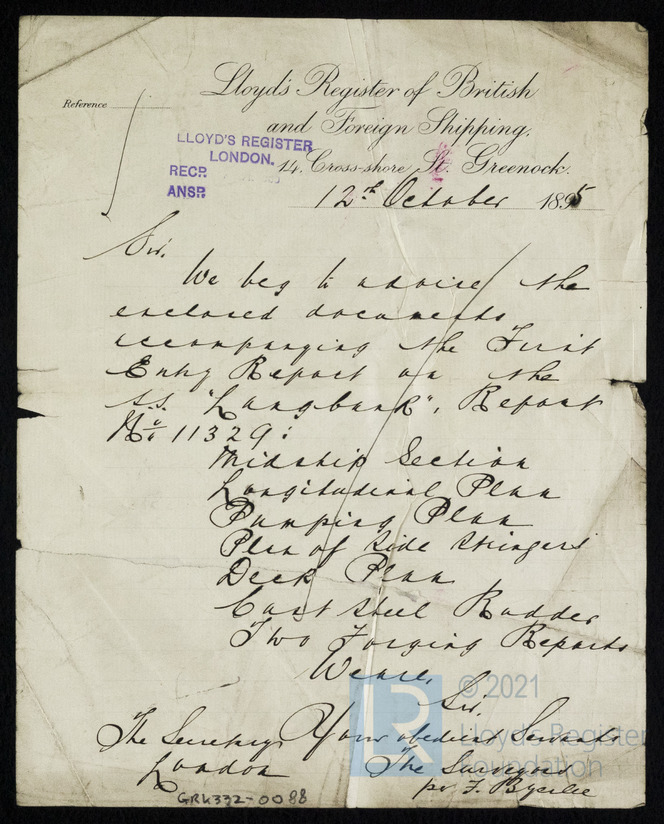 Lloyd's Register of British
and Foreign Shipping.
Reference
LLOYD'S REGISTER
LONDON.
RECD.
ANSD.
14, Cross-shore St. Greenock.
12th October 1895
Sir,
We beg to advise the
enclosed documents
accompanying the First
Entry Report on the
s.s. "Langbank", Report
No 11329:
Midship Section
Longitudinal Plan
Pumping Plan
Plan of Side Stringers
Deck Plan
Cast Steel Rudder
Two Forging Reports
We are,
Sir,
Your obedient Servants
The Secretary
The Surveyors
London
pr. F.
GRK332-0088
LR
© 2021
Lloyd's Register
Foundation